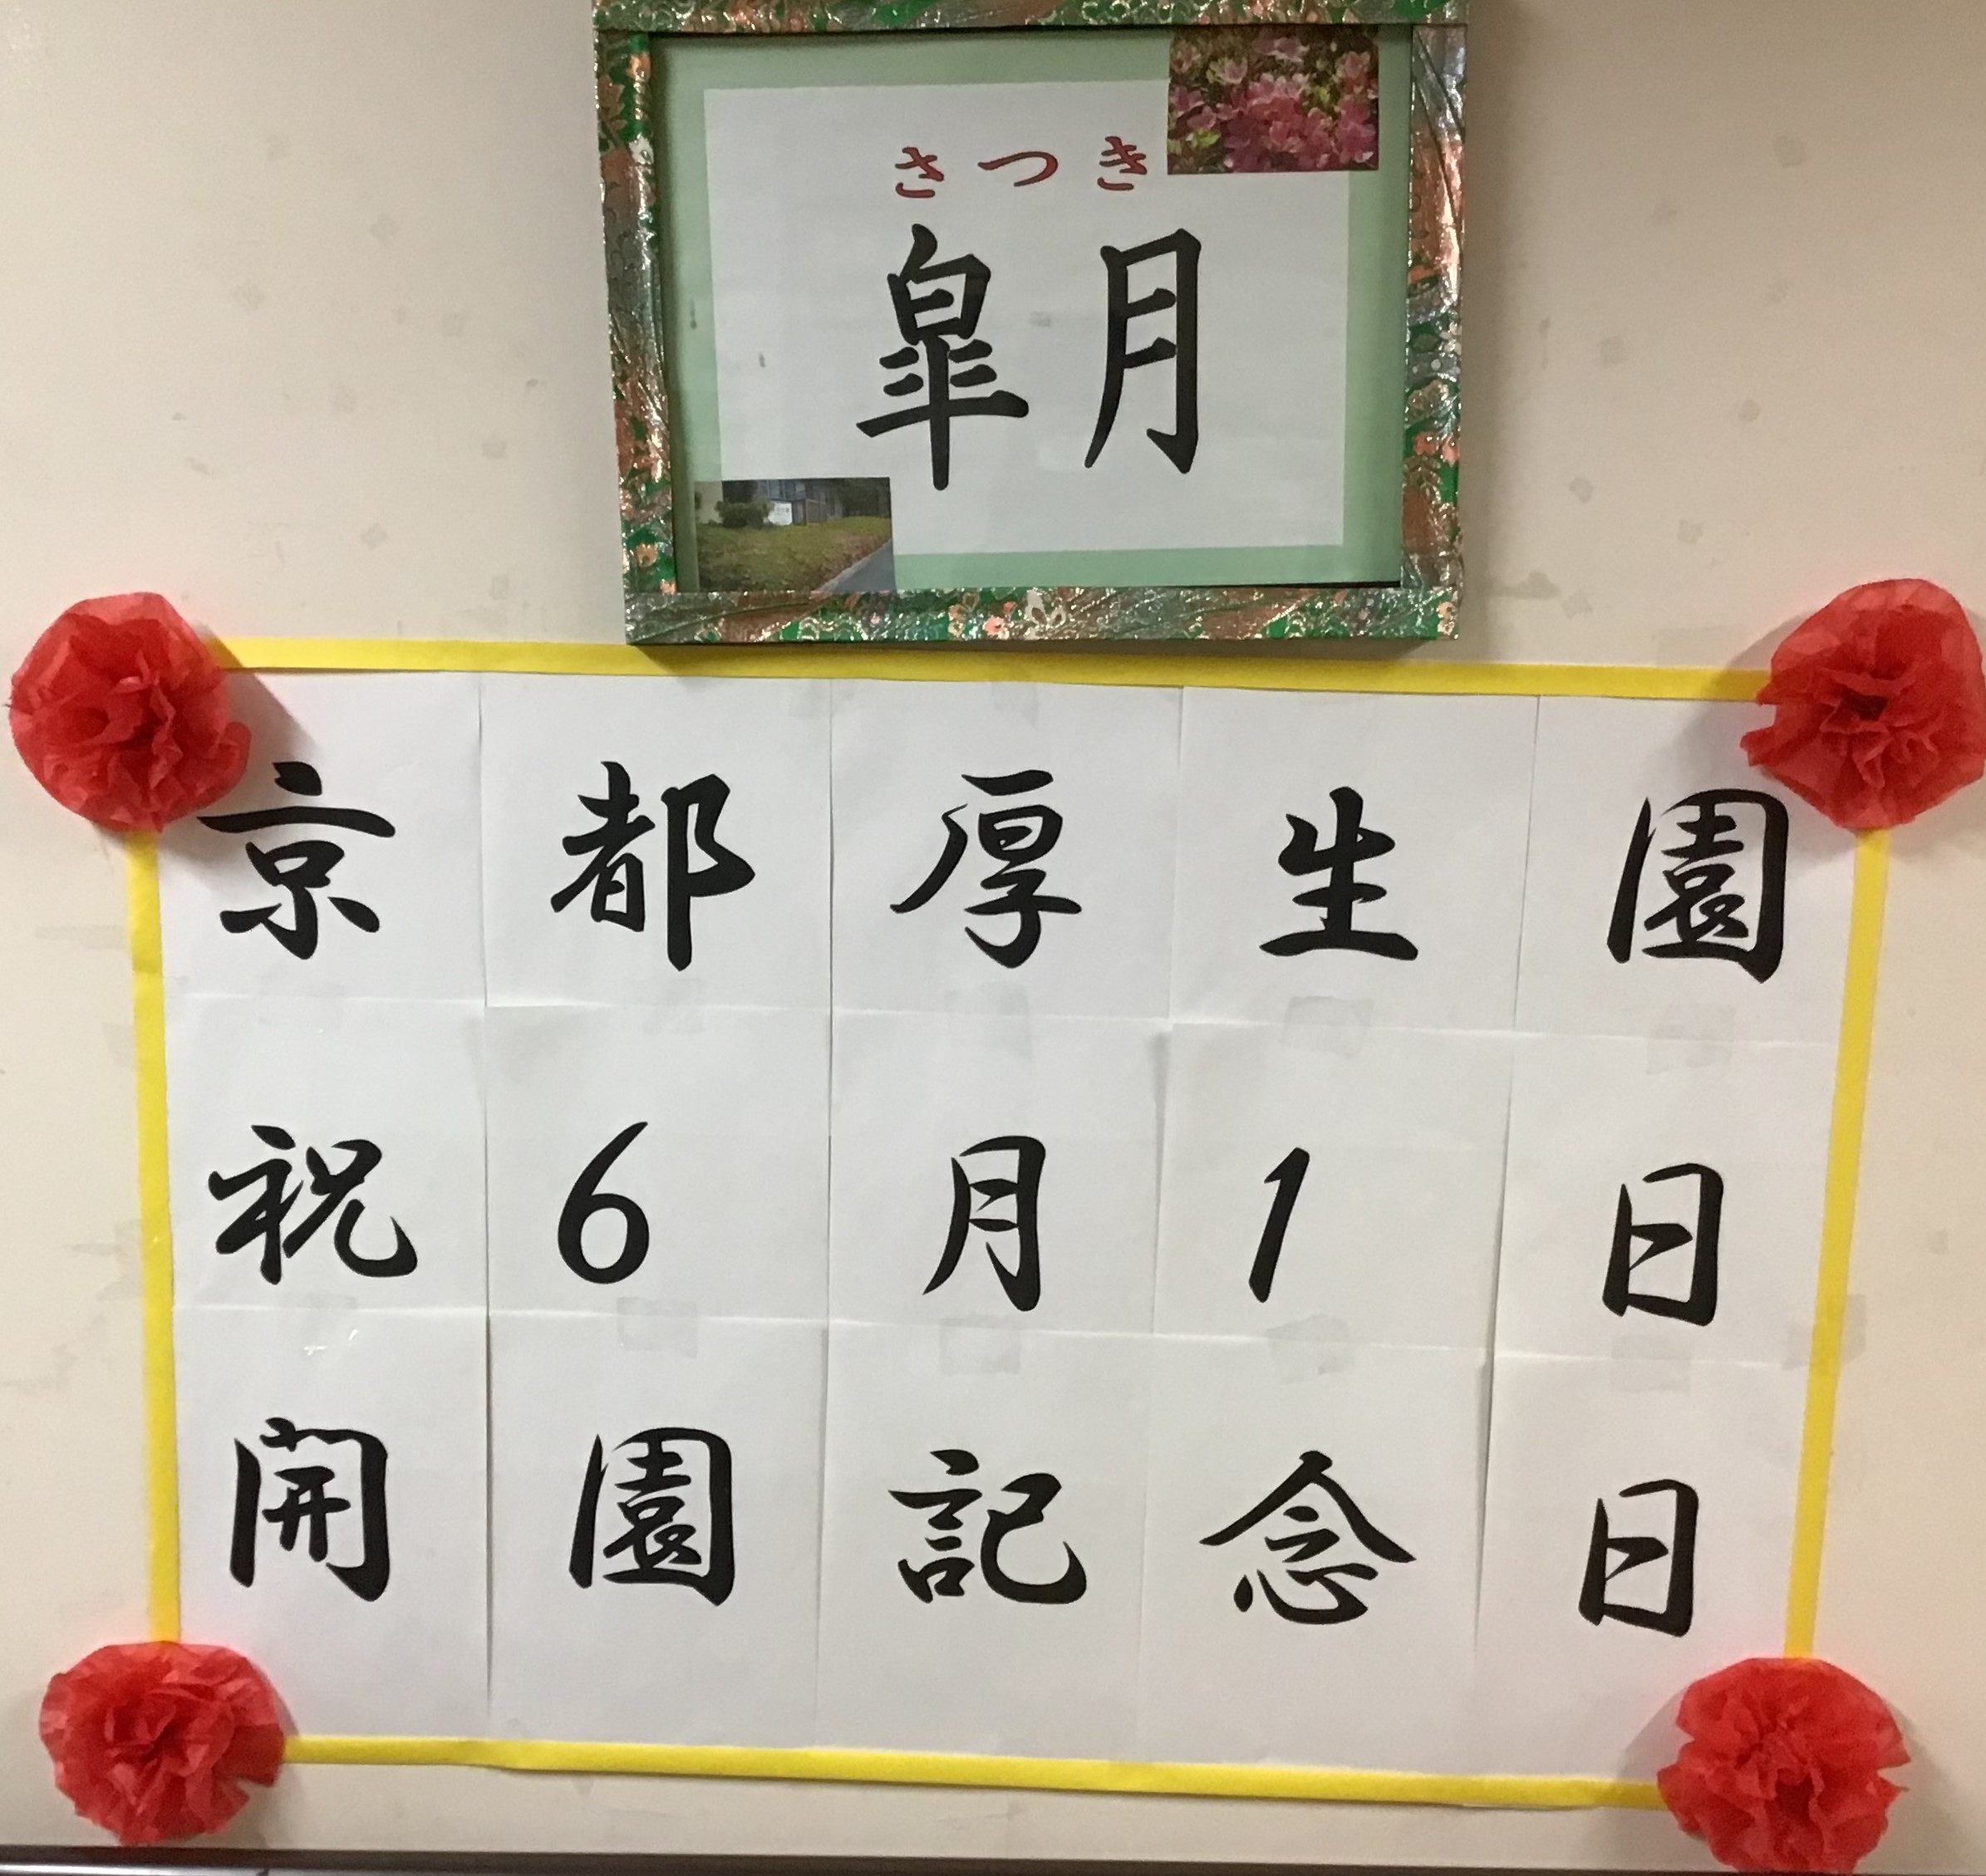 さつき
皐月
京都厚生園
祝6月1日
開園記念日